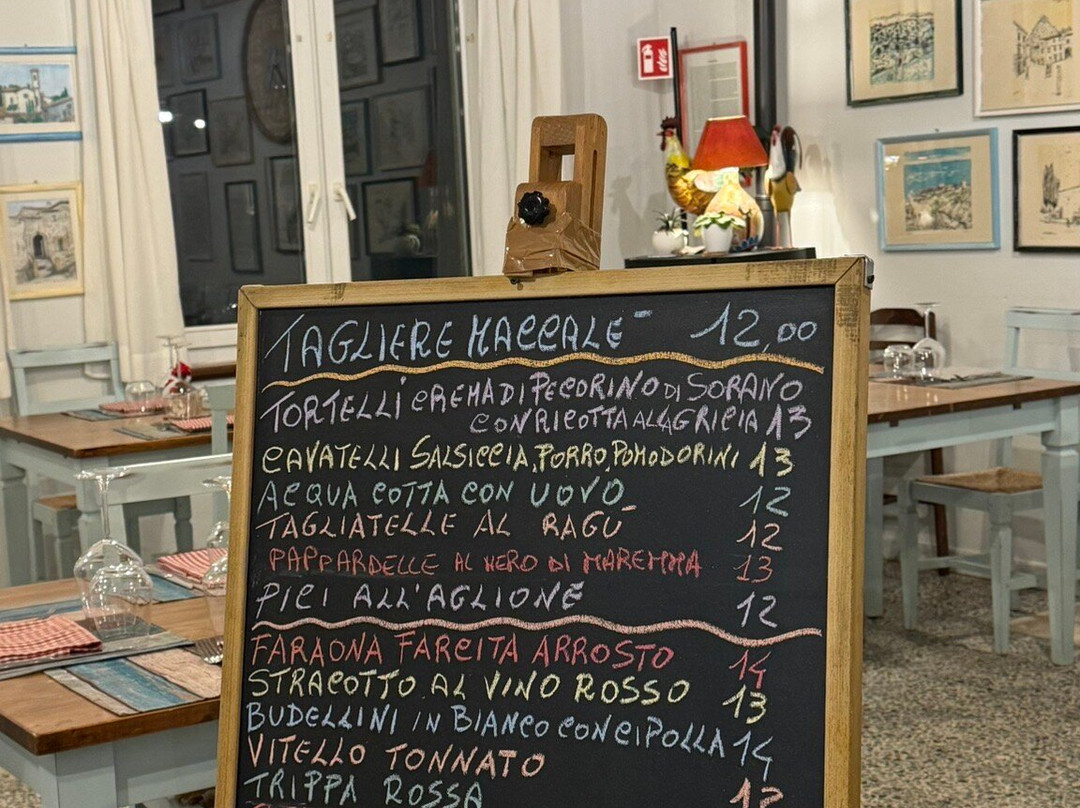 TAGLIERE MACCALÈ 12,00
TORTELLI CREMA DI PECORINO DI SORANO
CON RICOTTA ALLA GRICIA 13
CAVATELLI SALSICCIA, PORRO, POMODORINI 13
ACQUA COTTA CON UOVO 12
TAGLIATELLE AL RAGÙ 12
PAPPARDELLE AL NERO DI MAREMMA 13
PICI ALL'AGLIONE 12
FARAONA FARCITA ARROSTO 14
STRACOTTO AL VINO ROSSO 13
BUDELLINI IN BIANCO CON CIPOLLA 14
VITELLO TONNATO
TRIPPA ROSSA